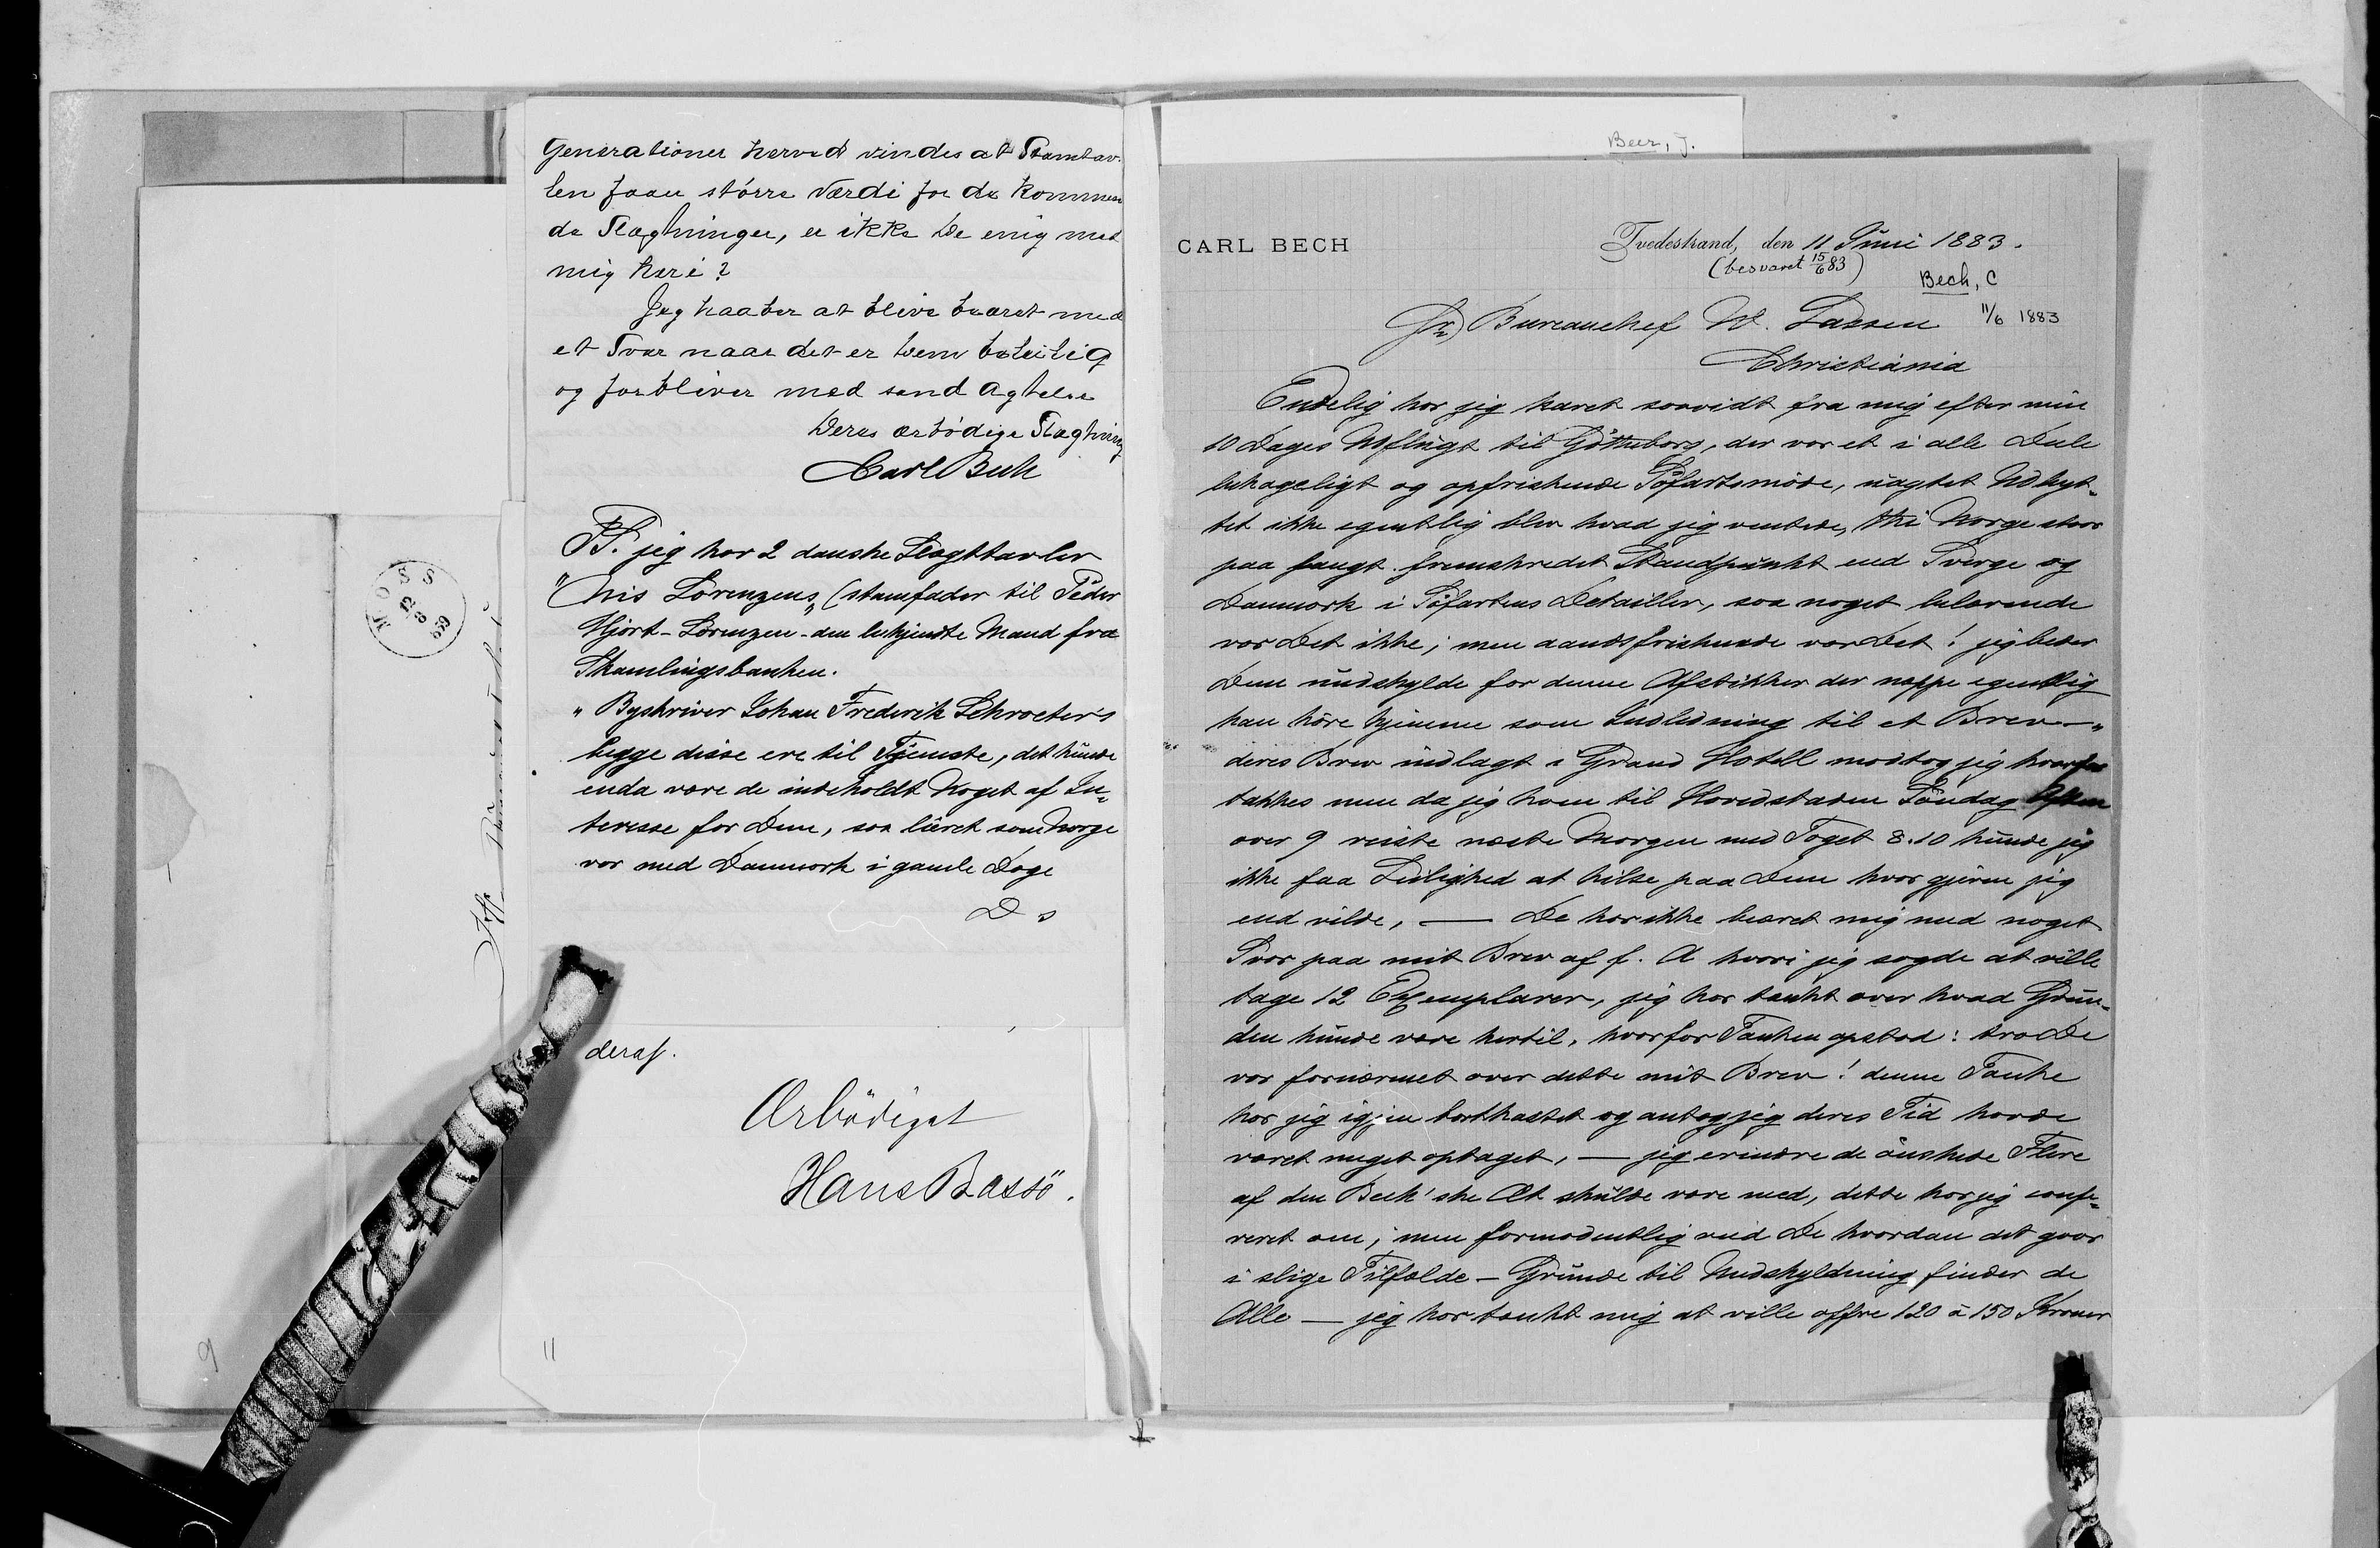 Generationer herved vindes at Stamtav-
len faaer större Værdi for de kommen
de Slægtninger, er ikke De enig med
mig heri?
Jeg haaber at blive beæret med
et Svar naar det er Dem beleilig
og forbliver med sand Agtelse
Deres ærbödige Slægtning
Carl Bech
PS. jeg har 2 danske Slægttavler
"Chris Lorenzens" (stamfader til Peder
Hjort-Lorenzen - den bekjendte Mand fra
Skamlingsbanken.
" Byskriver Johan Frederik Schroeter's
begge disse ere til Tjeneste, det kunde
enda være de indeholdt Noget af In-
teresse for Dem, saa lieret som Norge
var med Danmark i gamle Dage
D s
deraf.
Ærbödigst
Hans Bassö.
11
9
MOSS
12
8
Beer, J.
CARL BECH
Tvedestrand, den 11 Juni 1883.
(besvaret 15/6 83)
Bech, C
11/6 1883
Hr Bureauchef W. Lassen
Christiania
Endelig har jeg karet saavidt fra mig efter min
10 Dages Udflugt til Götheborg, der var et i alle Dele
behageligt og opfriskende Söfartsmöde, uagtet Udbyt-
tet ikke egentlig blev hvad jeg ventede, thi Norge staar
paa langt fremskredet Standpunkt end Sverge og
Danmark i Söfartens Detailler, saa noget belærende
var Det ikke; men aandsfriskende var Det! jeg beder
Dem undskylde for denne Afstikker der neppe egentlig
kan höre hjemme som Indledning til et Brev —"
deres Brev indlagt i Grand Hotell modtog jeg hvorfor
takkes men da jeg kom til Hovedstaden Söndag Aften
over 9 reiste næste Morgen med Toget 8.10 kunde jeg
ikke faa Leilighed at hilse paa Dem hvor gjerne jeg
end vilde, — De har ikke beæret mig med noget
Svar paa mit Brev af f. A hvori jeg sagde at ville
tage 12 Exemplarer, jeg har tænkt over hvad Grun-
den kunde være hertil, hvorfor Tanken opstod: tro De
var fornærmet over dette mit Brev! denne Tanke
har jeg igjen bortkastet og antog jeg deres Tid havde
været meget optaget, — jeg erindre de önskede Flere
af den Bech'ske Æt skulde være med, dette har jeg confe-
reret om; men formodentlig veed De hvordan det gaar
i slige Tilfælde — Grunde til Undskyldning finder de
Alle — jeg har tænkt mig at ville offre 120 à 150 Kroner